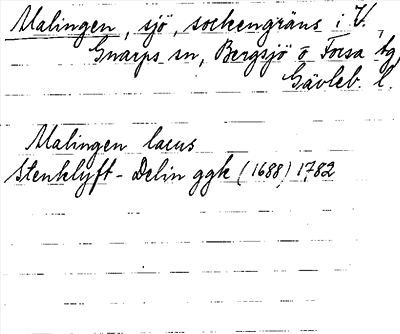 Malingen, sjö, sockengräns i V.,
Gnarps sn, Bergsjö o Forsa tg
Gävleb. l.
Malingen lacus
Stenklyft - Delin ggk (1688) 1782